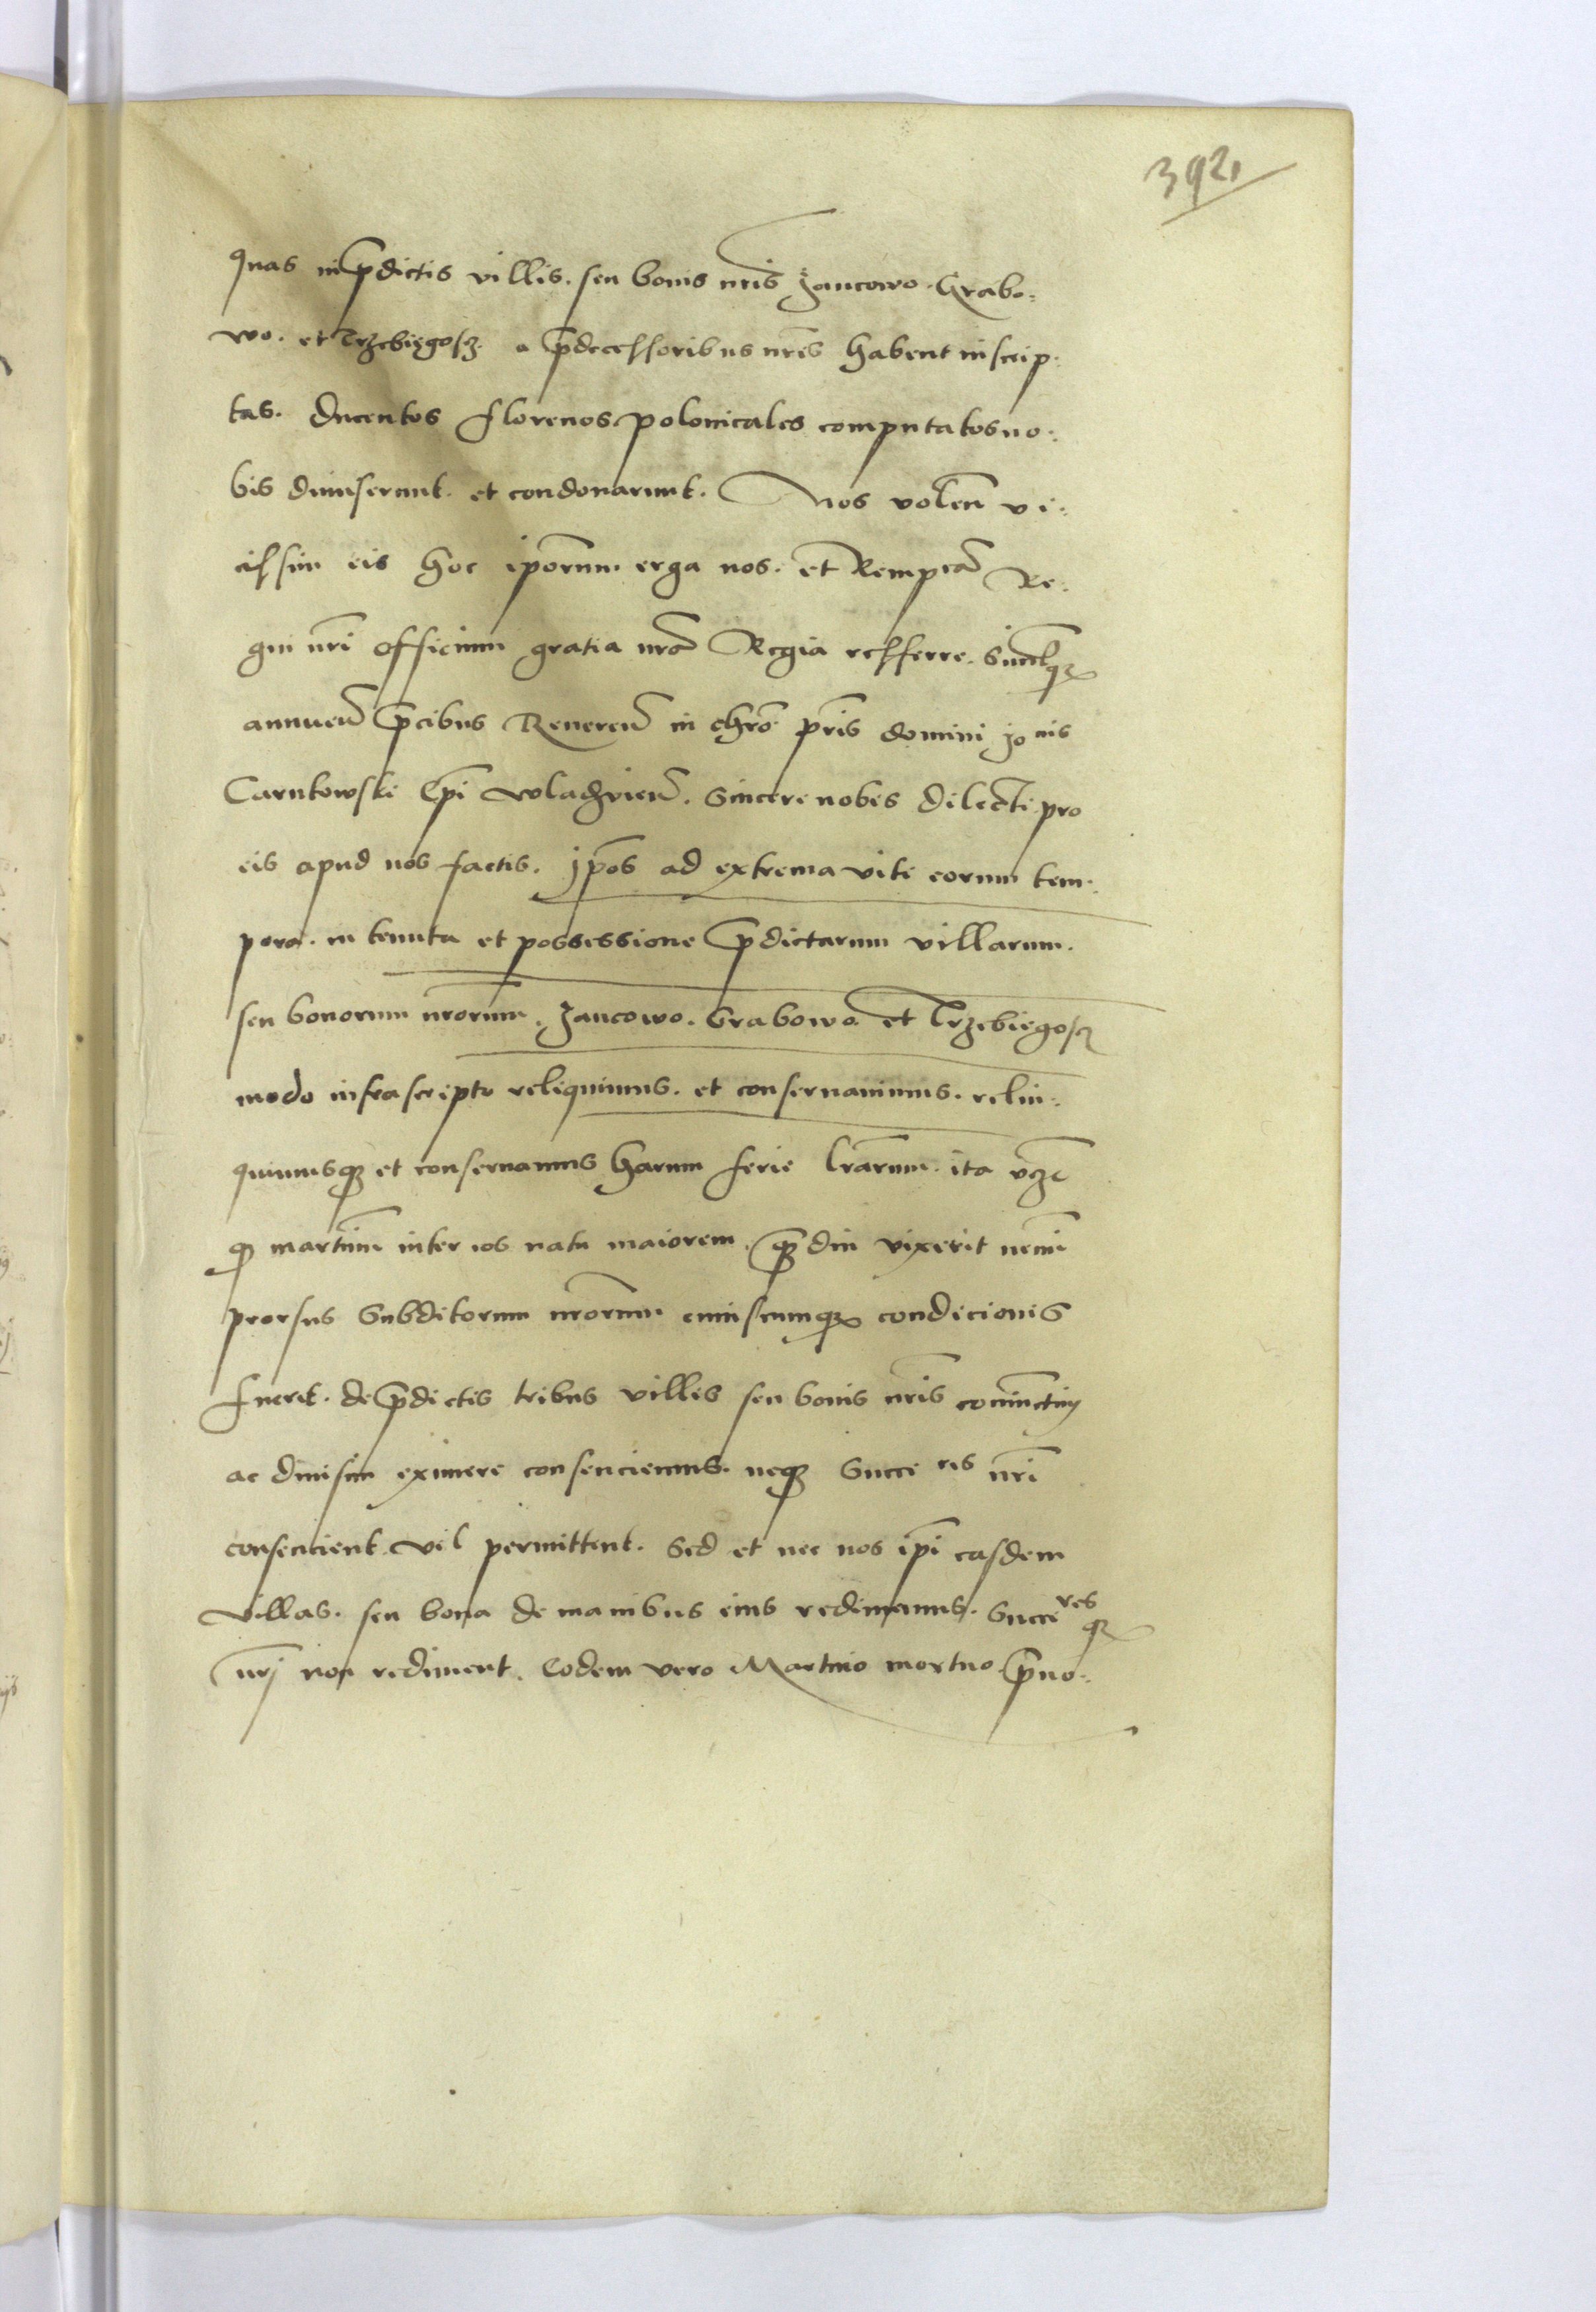 392
quas in p̄dictis villis. seu bonis nr̄is Jancowo. Grabo:
wo. et Trzebięgosz. a p̄decessoribus nr̄is habent inscrip:
tas. Ducentos florenos polonicales computatos no:
bis dimiserunt. et condonarunt. Nos volen̄ vi:
cissim eis hoc ip̄orum erga nos. et Remp̄cā Re:
gni nr̄i officium gratia nr̄a Regia refferre.
annuen̄ p̄cibus Reueren̄ in chr̄o pr̄is domini Jo nis
Carnkowski Ep̄i wladzvien̄. Sincere nobis dilecti. pro
eis apud nos factis. Jp̄os ad extrema vite eorum tem:
pora. in tenuta et possessione p̄dictarum villarum.
seu bonorum nr̄orum. Jancowo. Grabowo et Trzebięgosz
modo infrascripto reliquimus. et conseruauimus. relin:
quimusq3 et conseruamus harum serie lr̄arum. ita vz̄
q martinū inter eos natu maiorem. q̄diu vixerit nemī
prorsus Subditorum nr̄orum cuiuscumq3 condicionis
fuerit. de p̄dictis tribus villis seu bonis nr̄is coniunctim
ac diuisim eximere consenciemus. neq3 Succe res nr̄i
consencient vel permittent. Sed et nec nos ip̄i easdem
villas. seu bona de manibus eius redimemus. Succe resq3
nr̄j non rediment. Eodem vero Martino mortuo p̄no: